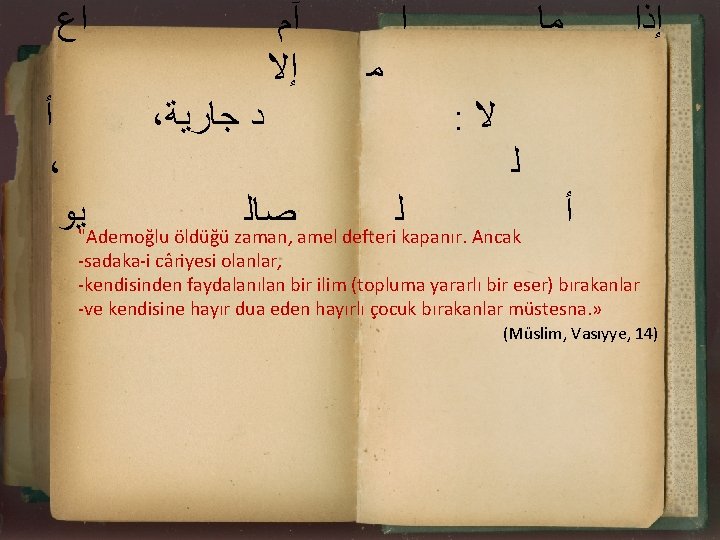 إذا ما ا آم اع
م إلا
لا : د جارية، أ
ل ،
أ ل صال يو
"Ademoğlu öldüğü zaman, amel defteri kapanır. Ancak
-sadaka-i câriyesi olanlar,
-kendisinden faydalanılan bir ilim (topluma yararlı bir eser) bırakanlar
-ve kendisine hayır dua eden hayırlı çocuk bırakanlar müstesna. »
(Müslim, Vasıyye, 14)